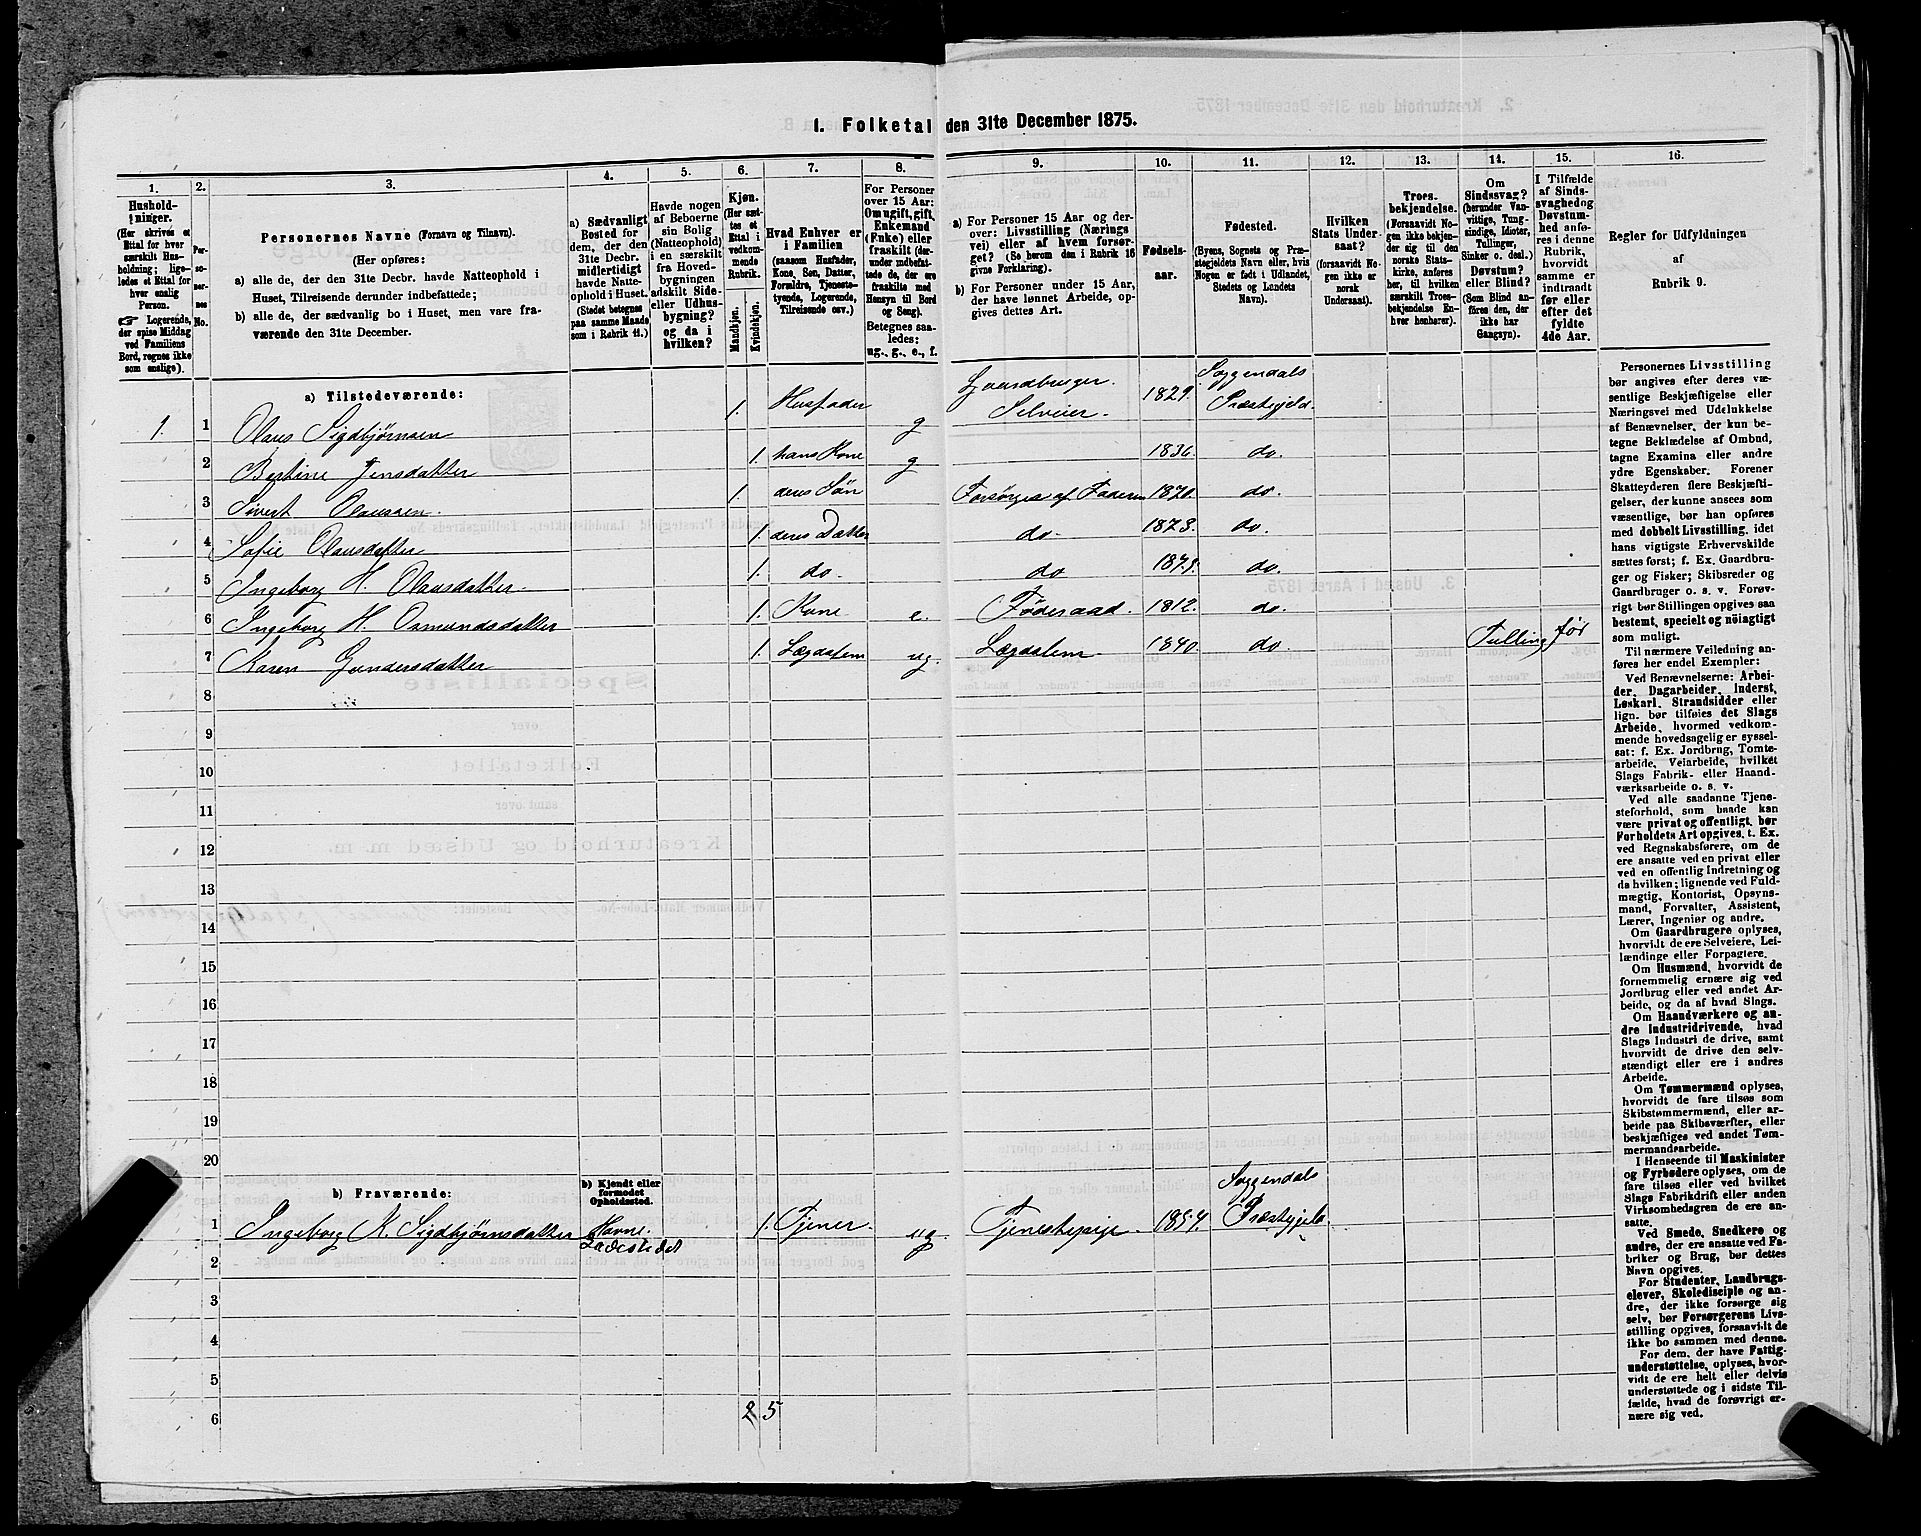 1. Folketal den 31te December 1875.
1. 2. 3. 4. 5. 6. 7. 8. 9. 10. 11. 12. 13. 14. 15. 16.
Hushold-
ninger.
(Her skrives et
Ettal for hver
særskilt Hus-
holdning; lige-
ledes et Ettal for
hver enslig
Person.
☞ Logerende,
der spise Middag
ved Familiens
Bord, regnes ikke
som enslige).
Per-
so-
ner-
nes
No.
Personernes Navne (Fornavn og Tilnavn).
(Her opføres:
a) alle de, der den 31te Decbr. havde Natteophold i
Huset, Tilreisende derunder indbefattede;
b) alle de, der sædvanlig bo i Huset, men vare fra-
værende den 31te December.
a) Sædvanligt
Bosted for
dem, der den
31te Decbr.
midlertidigt
havde Natte-
ophold i Huset.
(Stedet betegnes
paa samme Maade
som i Rubrik 11.)
Havde nogen
af Beboerne
sin Bolig
(Natteophold)
i en særskilt
fra Hoved-
bygningen
adskilt Side-
eller Udhus-
bygning?
og da i
hvilken?
Kjøn.
(Her sæt-
tes et
Ettal i
vedkom-
mende
Rubrik.
Mandkjøn.
Kvindekjøn.
Hvad Enhver er
i Familien
(saasom Husfader,
Kone, Søn, Datter,
Forældre, Tjeneste-
tyende, Logerende,
Tilreisende osv.)
For Personer
over 15 Aar:
Om ugift, gift,
Enkemand
(Enke) eller
fraskilt (der-
under indbefat-
tede de, der ere
fraskilte med
Hensyn til Bord
og Seng).
Betegnes saa-
ledes:
ug., g., e., f.
a) For Personer 15 Aar og der-
over: Livsstilling (Nærings
vei) eller af hvem forsør-
get? (Se herom den i Rubrik 16
givne Forklaring).
b) For Personer under 15 Aar,
der have lønnet Arbeide, op-
gives dettes Art.
Fødsels-
aar.
Fødested.
(Byens, Sognets og Præ-
stegjeldets Navn eller, hvis
Nogen er født i Udlandet,
Stedets og Landets
Navn).
Hvilken
Stats Under-
saat?
(foraavidt No-
gen ikke er
norsk
Undersaat).
Troes-
bekjendelse.
(Forsaavidt No-
gen ikke bekjen-
der sig til den
norske Stats-
kirke, anføres
her, til hvilken
særskilt Troes-
bekjendelse En-
hver henhører).
Om
Sindssvag?
(herunder Van-
vittige, Tung-
sindige, Idioter,
Tullinger,
Sinker o. desl.)
Døvstum?
eller Blind?
(Som Blind an-
føres den, der
ikke har
Gangsyn).
I Tilfælde
af Sinds-
svaghed og
Døvstum-
hed anfø-
res i denne
Rubrik,
hvorvidt
samme er
indtraadt
før eller
efter det
fyldte
4de Aar.
Regler for Udfyldningen
af
Rubrik 9.
a) Tilstedeværende:
1. 1 Olaus Sigbjørnsen 1. Husfader g Gaardbruger Selveier. 1829. Soggendals Præstegjeld.
2 Bertine Jensdatter 1. hans Kone g 1836. do.
3 Sivert Olaussen. 1. deres Søn Forsørges af Faderen 1870. do.
4 Sofie Olausdatter 1. deres Datter do. 1873. do.
5 Ingeborg H. Olausdatter. 1. do. do 1875. do.
6 Ingeborg H. Osmundsdatter 1. Kone e. Føderaad. 1812. do.
7 Karen Gundersdatter 1. Lægdslem ug. Lægdslem. 1840. do. Tulling før
8
9
10
11
12
13
14
15
16
17
18
19
20
b) Fraværende:
b) Kjendt eller
formodet
Opholdssted.
1 Ingeborg K. Sigbjørnsdatter Havne Ladestedet 1. Tjener. ug Tjenestepige. 1854. Soggendals Præstegjeld
2
3
4
5
6
2 5
Personernes Livsstilling
bør angives efter deres væ-
sentlige Beskjæftigelse eller
Næringsvei med Udelukkelse
af Benævnelser, der kun be-
tegne Beklædelse af Ombud,
tagne Examina eller andre
ydre Egenskaber. Forener
Skatteyderen flere Beskjæfti-
gelser, der kunne ansees som
væsentlige, bør han opføres
med dobbelt Livsstilling, idet
hans vigtigste Erhvervskilde
sættes først; f. Ex. Gaardbru-
ger og Fisker; Skibsreder og
Gaardbruger o. s. v. Forøv-
rigt bør Stillingen opgives saa
bestemt, specielt og nöiagtigt
som muligt.
Til nærmere Veiledning an-
føres her endel Exempler:
Ved Benævnelserne: Arbei-
der, Dagarbeider, Inderst,
Løskarl, Strandsidder eller
lign. bør tilføies det Slags
Arbeide, hvormed vedkom-
mende hovedsagelig er syssel-
sat: f. Ex. Jordbrug, Tomte-
arbeide, Veiarbeide, hvilket
Slags Fabrik- eller Haand-
værksarbeide o. s. v.
Ved alle saadanne Tjene-
steforhold, som baade kan
være privat og offentligt, bør
Forholdets Art opgives, t. Ex.
ved Regnskabsførere, om de
ere ansatte ved en privat eller
ved en offentlig Indretning og
da hvilken; lignende ved Fuld-
mægtig, Kontorist, Opsyns-
mand, Forvalter, Assistent,
Lærer, Ingeniør og andre.
Om Gaardbrugere oplyses,
hvorvidt de ere Selveiere, Lei-
lændinge eller Forpagtere.
Om Husmænd, hvorvidt de
fornemmelig ernære sig ved
Jordbrug eller ved andet Ar-
beide, og da af hvad Slags.
Om Haandværkere og an-
dre Industridrivende, hvad
Slags Industri de drive, samt
hvorvidt de drive den selv-
stændigt eller ere i andres
Arbeide.
Om Tømmermænd oplyses,
hvorvidt de fare tilsøs som
Skibstømmermænd, eller ar-
beide paa Skibsværfter, eller
beskjæftiges ved andet Tøm-
mermandsarbeide.
I Henseende til Maskinister
og Fyrbødere oplyses, om de
fare tilsøs eller ved hvilket
Slags Fabrikdrift eller anden
Virksomhedsgren de ere an-
satte.
Ved Smede, Snedkere og
andre, der ere ansatte ved Fa-
briker og Brug, bør dettes
Navn opgives.
For Studenter, Landbrugs-
elever, Skoledisciple og an-
dre, der ikke forsørge sig
selv, bør Forsørgerens Livs-
stilling opgives, forsaavidt de
ikke bo sammen med denne.
For dem, der have Fattig-
understøttelse, oplyses, hvor-
vidt de ere helt eller delvis
understøttede og i sidste Til-
fælde, hvad de forøvrigt er-
nære sig ved.